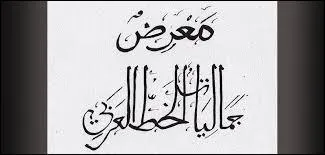 مَعْرِض
جماليات الخط العربي